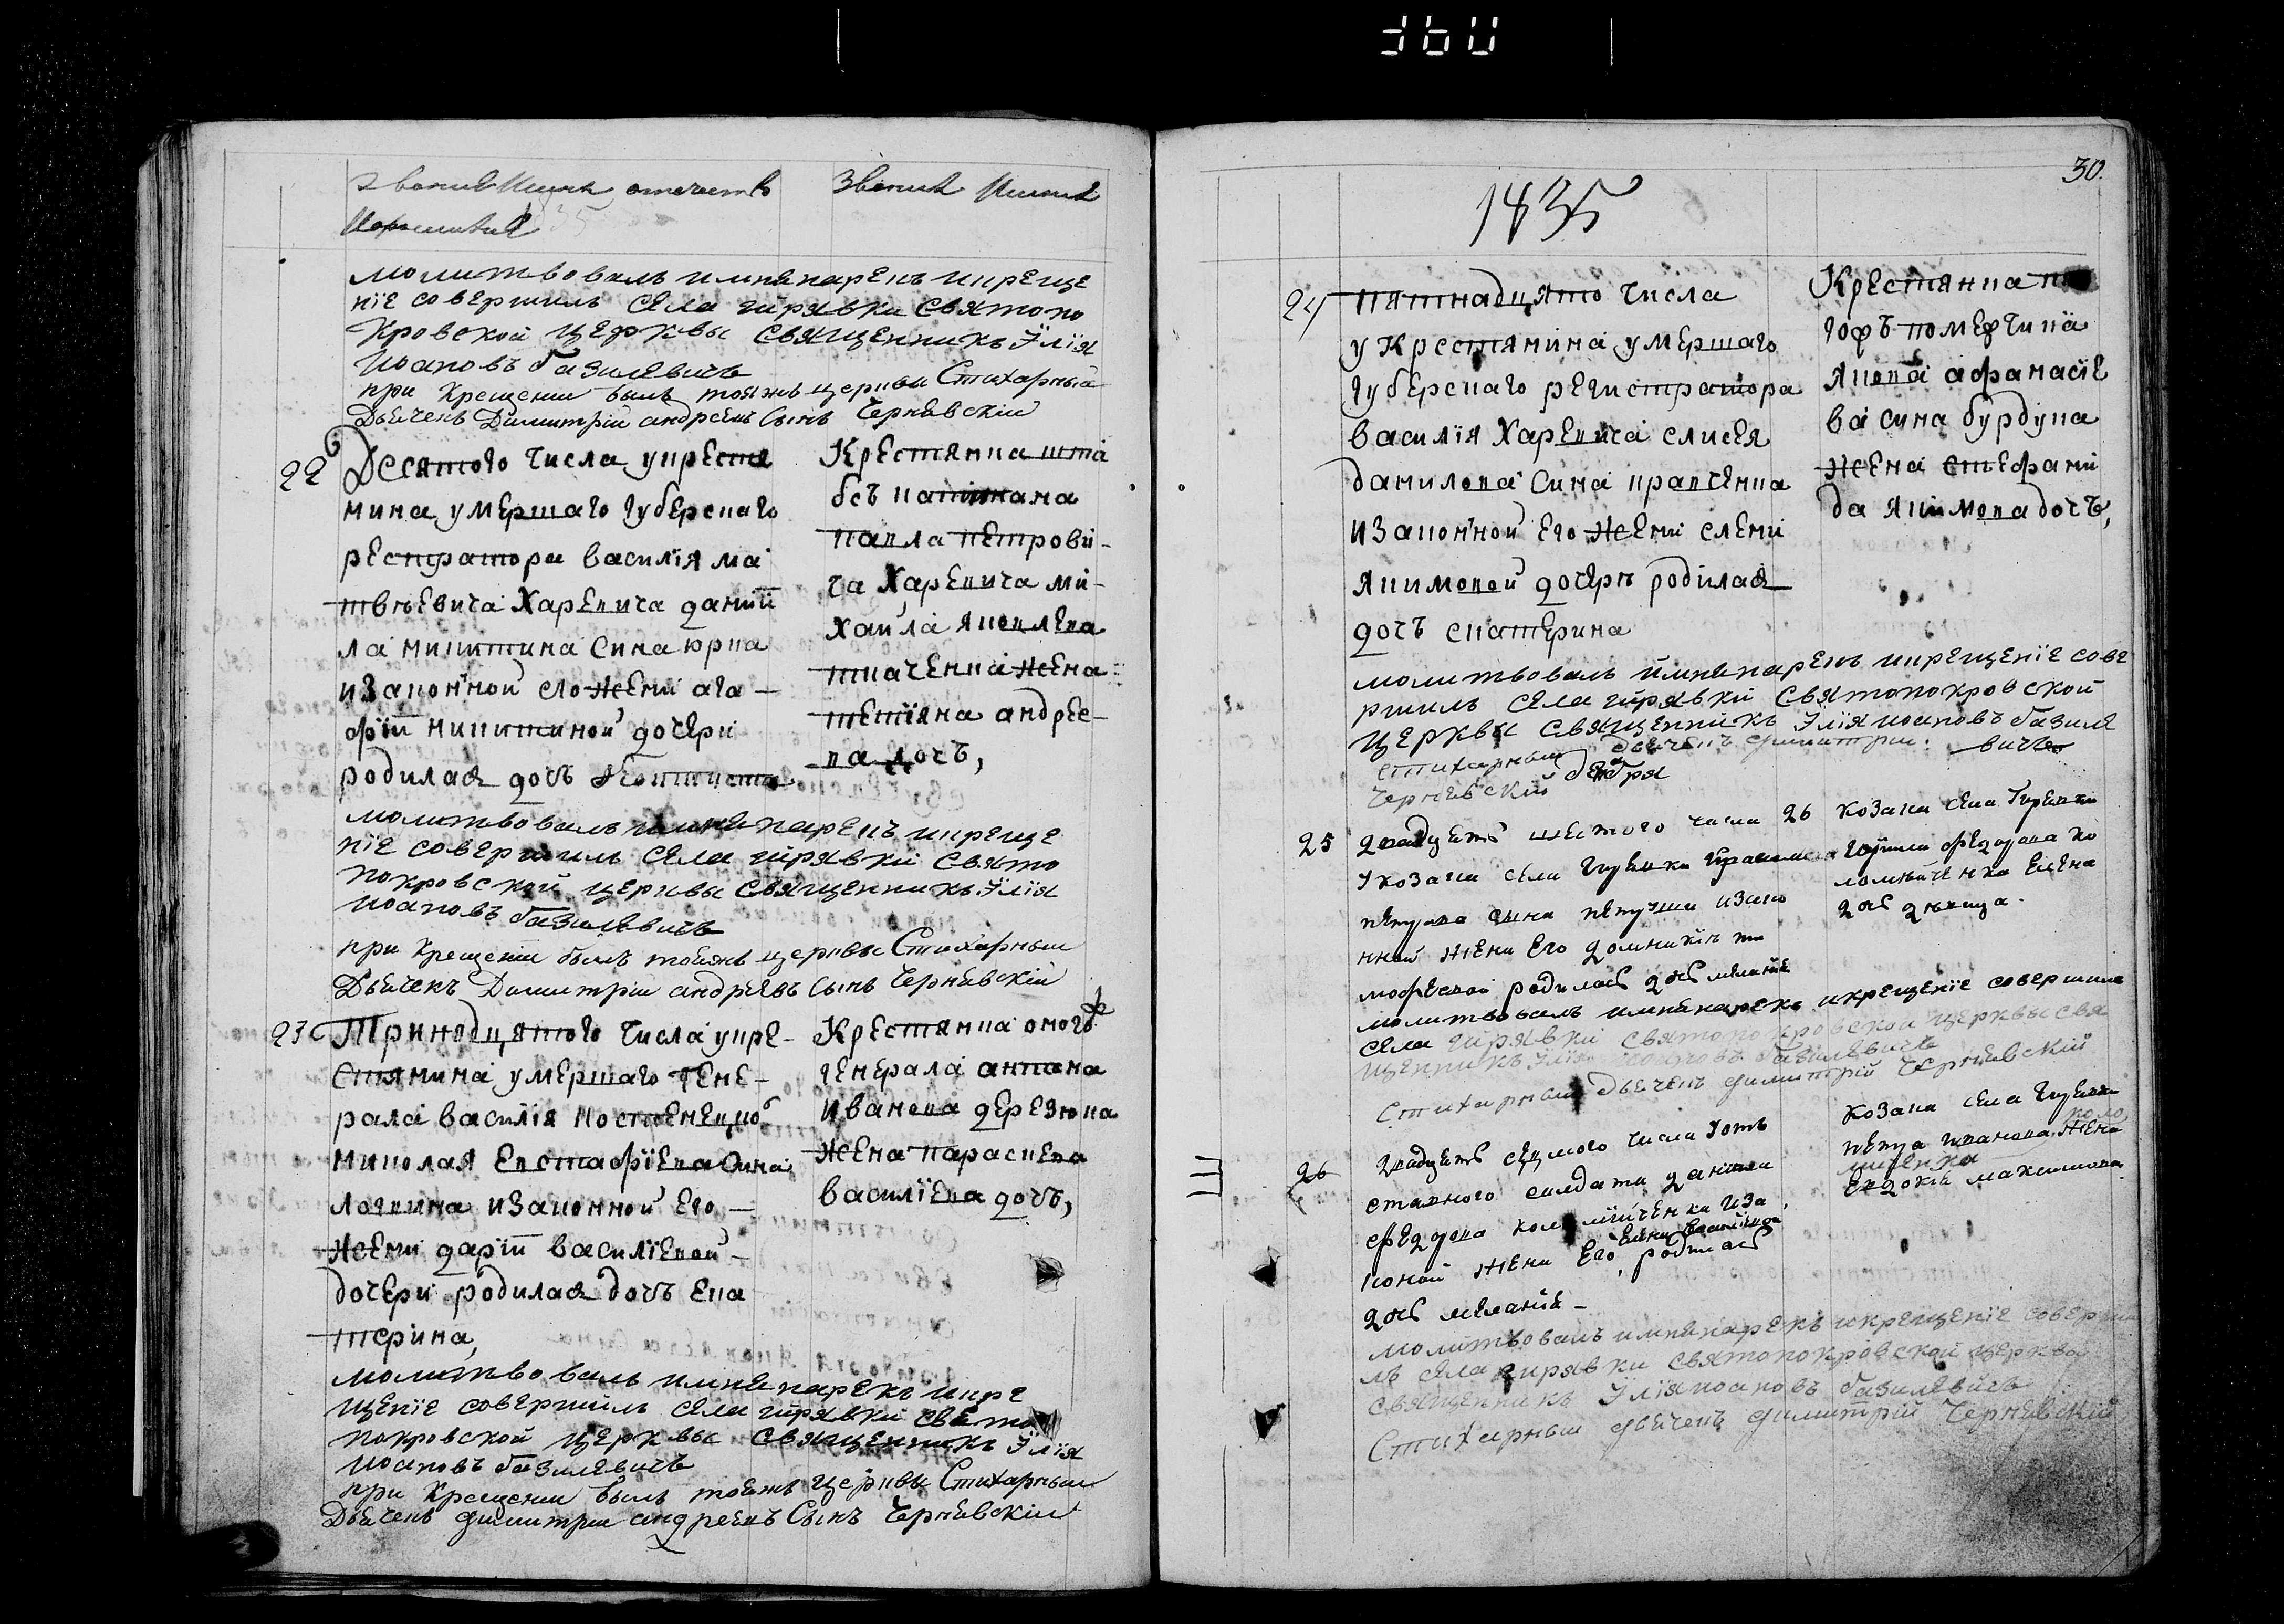 званіе Имя отечество
Ипрозвание
Званиѣ Имени
молитвовалъ имянарекъ икреще
ніе совершилъ села гирявки святопо
кровской церквы священникъ Їлїя
Иоановъ базилевичъ
при Крещении былъ тояжъ церквы Стихарный
Дьячекъ Димитрій андреевъ Сынъ Чернѣвскій
22
Десятого числа укрестя
нина умершаго губерскаго
рестратора василїя ма
твѣевича Харевича даниї
ла микитина сина юрка
изаконной его жени ага
фїї микитиной дочери
родилася дочъ
Крестянка шта
бсъ капитана
павла петрови-
ча Харевича ми-
хаила яковлева
ткаченка жена
тетїяна андрее-
ва дочъ,
молитвовалъ имянарекъ икреще
ніе совершилъ села гирявки свято
покровской церквы священникъ Їлїя
иоановъ базилевичъ
при крещеніи былъ тояжъ церквы Стихарный
Дьячекъ Димитрій андреевъ Сынъ Чернѣвскій
23
Тринадцятого числа укре-
стянина умершаго гене-
рала василїя
миколая евстафїева сина
логвина изаконной его
жени дарїї василїевой
дочери родилася дочъ ека
терина,
Крестянка оного
генерала антона
иванова дерезюка
жена параскева
василїева дочъ,
молитвовалъ имянарекъ икре
щеніе совершилъ села гирявки свято
покровской церквы священникъ Їлїя
иоановъ базилевичъ
при Крещении былъ тояжъ церквы Стихарный
Дьячекъ димитрій андреевъ Сынъ Чернѣвскій
30.
1835
24
пятнадцято числа
укрестянина умершаго
губерскаго регистратора
василїя Харевича елисея
данилова сина кравченка
изаконной его жени елени
якимовой дочеръ родилася
дочъ екатерина
Крестянка
горъ померчика
якова афанасїе
ва сина бурдуна
жена стефани
да якимова дочъ,
молитвовалъ имянарекъ икрещеніе сове
ршилъ села гирявки святопокровской
церквы священникъ Їлїя иоановъ базиле
вичъ
стихарный дьячекъ димитрій
Чернѣвскій
25
двадцеть шестого числа 26
укозака села Гирявки
петрова сына изако
нной жени Его домникїи ти
мофеевой родилась дочь меланія
козака села Гирявки
федорова ко
ломѣйченка Елена
дочь дѣвица.
молитвовалъ имянарекъ икрещеніе совершилъ
села гирявки святопокровской церквы свя
щенникъ Їлїя иоановъ базилевичъ
Стихарный дьячекъ димитрій Чернѣвскій
26
двадцеть седмого числа уотъ
ставного солдата данила
федорова коломїйченка иза
коной жени Его Елени василїевой родилась
дочь меланія -
козака села Гирявки
петра иванова коло
мійченка жена
Евдокія максимова
молитвовалъ имянарекъ икрещеніе соверши
лъ села гирявки святопокровской церквы
священникъ Їлїя иоановъ базилевичъ
Стихарный дьячекъ димитрій Чернѣвскій